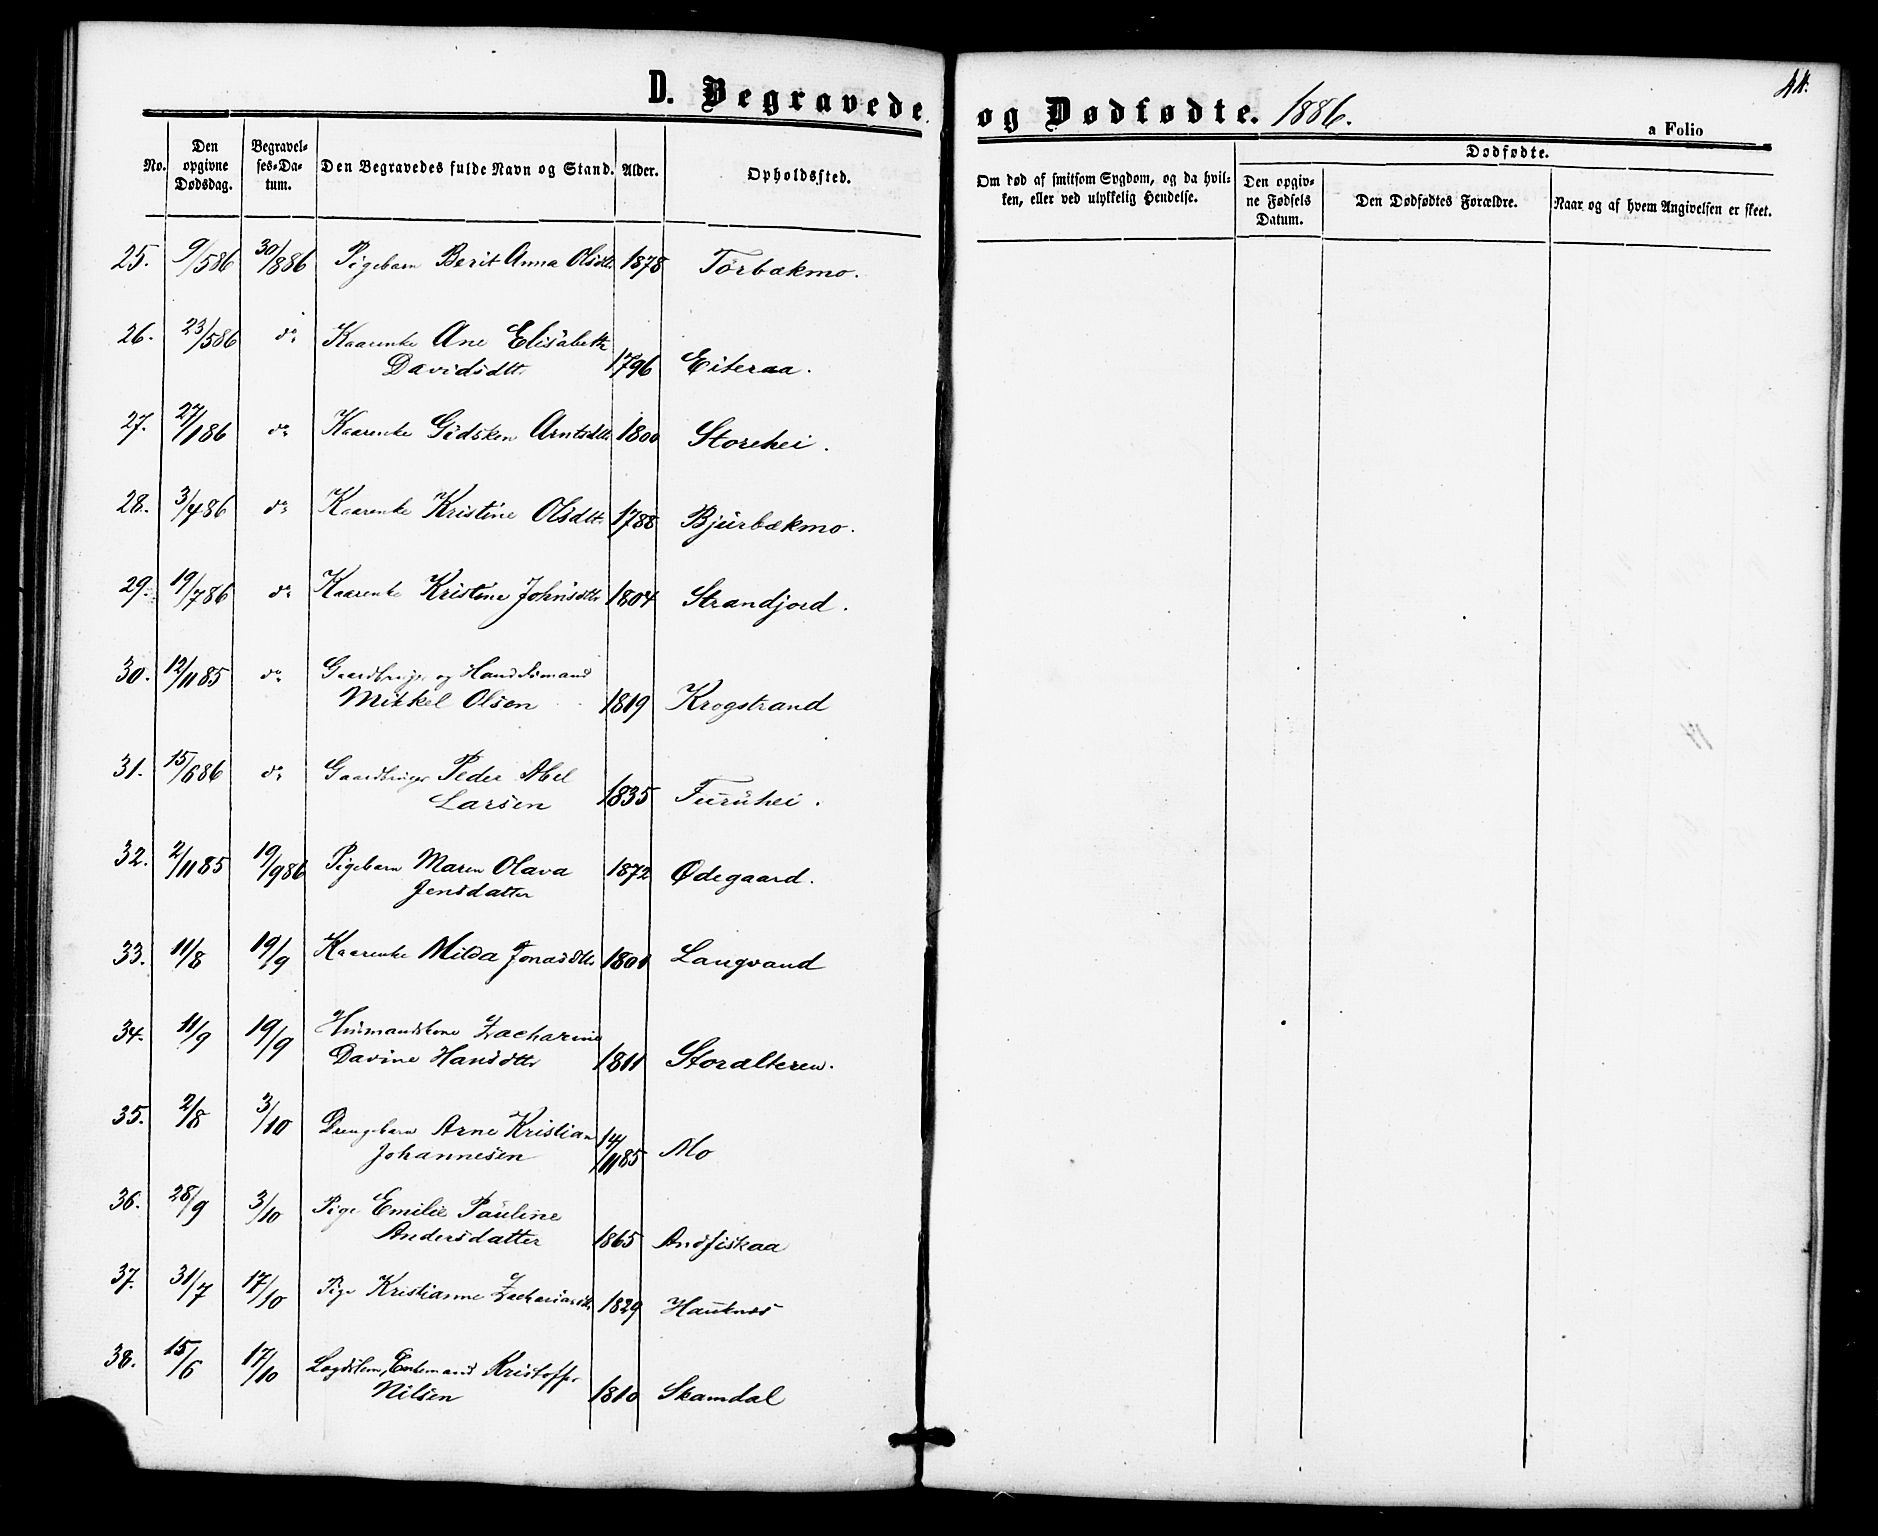 D. Begravede
No. Den opgivne Dødsdag. Begravelses-Datum. Den Begravedes fulde Navn og Stand. Alder. Opholdssted.
25. 9/5 86 30/8 86 Pigebarn Berit Anna Olsdtr. 1878 Tørbækmo.
26. 23/5 86 do Kaarenke Ane Elisabeth
Davidsdtr. 1796 Eiteraa.
27. 27/1 86 do Kaarenke Gidsken Arntsdtr 1800 Storehei.
28. 3/4 86 do Kaarenke Kristine Olsdtr. 1788 Bjurbækmo.
29. 19/7 86 do Kaarenke Kristine Johnsdtr 1804 Strandjord.
30. 12/11 85 do Gaardbruger og Handelsmand
Mikkel Olsen 1819 Krogstrand
31. 15/6 86 do Gaardbruger Peder Abel
Larsen 1835 Furuhei.
32. 2/11 85 19/9 86 Pigebarn Maren Olava
Jensdatter 1872 Ødegaard.
33. 11/8 19/9 Kaarenke Milda Jonasdtr. 1801 Langvand
34. 11/9 19/9 Husmandskone Zacharine
Davine Hansdtr 1811 Storalteren.
35. 2/8 3/10 Drengebarn Arne Kristian
Johannesen 14/11 85 Mo
36. 28/9 3/10 Pige Emilie Pauline
Andersdatter 1865 Andfiskaa
37. 31/7 17/10 Pige Kristianne Zachariasdtr. 1829 Hauknes
38. 15/6 17/10 Lægdslem, Enkemand Kristoffer
Nilsen 1810 Skamdal
og Dødfødte. 1886.
a Folio
Om død af smitsom Sygdom, og da hvil-
ken, eller ved ulykkelig Hendelse.
Dødfødte.
Den opgiv-
ne Fødsels
Datum.
Den Dødfødtes Forældre.
Naar og af hvem Angivelsen er skeet.